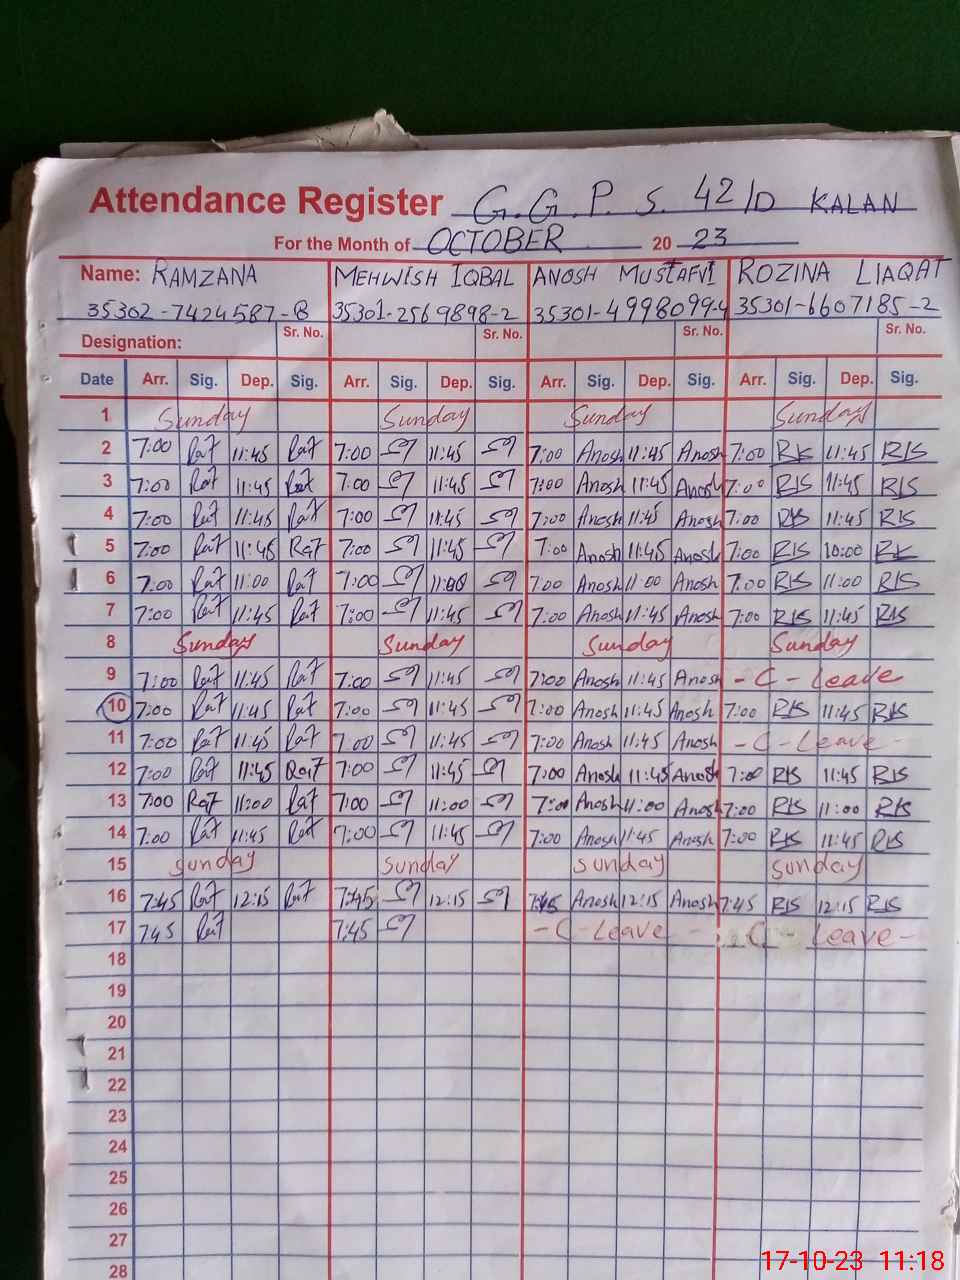 Attendance Register G.G.P.S. 42/D KALAN
For the Month of OCTOBER 20 23
Name: RAMZANA MEHWISH IQBAL ANOSH MUSTAFVI ROZINA LIAQAT
35302-7424587-8 35301-2569898-2 35301-4998099-4 35301-6607185-2
Designation: Sr. No. Sr. No. Sr. No. Sr. No.
Date Arr. Sig. Dep. Sig. Arr. Sig. Dep. Sig. Arr. Sig. Dep. Sig. Arr. Sig. Dep. Sig.
1 Sunday Sunday Sunday Sunday
2 7:00 11:45 7:00 11:45 7:00 Anosh 11:45 Anosh 7:00 RIS 11:45 RIS
3 7:00 11:45 7:00 11:45 7:00 Anosh 11:45 Anosh 7:00 RIS 11:45 RIS
4 7:00 11:45 7:00 11:45 7:00 Anosh 11:45 Anosh 7:00 RIS 11:45 RIS
5 7:00 11:45 7:00 11:45 7:00 Anosh 11:45 Anosh 7:00 RIS 10:00 RIS
6 7:00 11:00 7:00 11:00 7:00 Anosh 11:00 Anosh 7:00 RIS 11:00 RIS
7 7:00 11:45 7:00 11:45 7:00 Anosh 11:45 Anosh 7:00 RIS 11:45 RIS
8 Sunday Sunday Sunday Sunday
9 7:00 11:45 7:00 11:45 7:00 Anosh 11:45 Anosh - C - Leave
10 7:00 11:45 7:00 11:45 7:00 Anosh 11:45 Anosh 7:00 RIS 11:45 RIS
11 7:00 11:45 7:00 11:45 7:00 Anosh 11:45 Anosh - C - Leave -
12 7:00 11:45 7:00 11:45 7:00 Anosh 11:45 Anosh 7:00 RIS 11:45 RIS
13 7:00 11:00 7:00 11:00 7:00 Anosh 11:00 Anosh 7:00 RIS 11:00 RIS
14 7:00 11:45 7:00 11:45 7:00 Anosh 11:45 Anosh 7:00 RIS 11:45 RIS
15 Sunday Sunday Sunday Sunday
16 7:45 12:15 7:45 12:15 7:45 Anosh 12:15 Anosh 7:45 RIS 12:15 RIS
17 745 7:45 - C - Leave - - C - Leave -
18
19
20
21
22
23
24
25
26
27
28
17-10-23 11:18